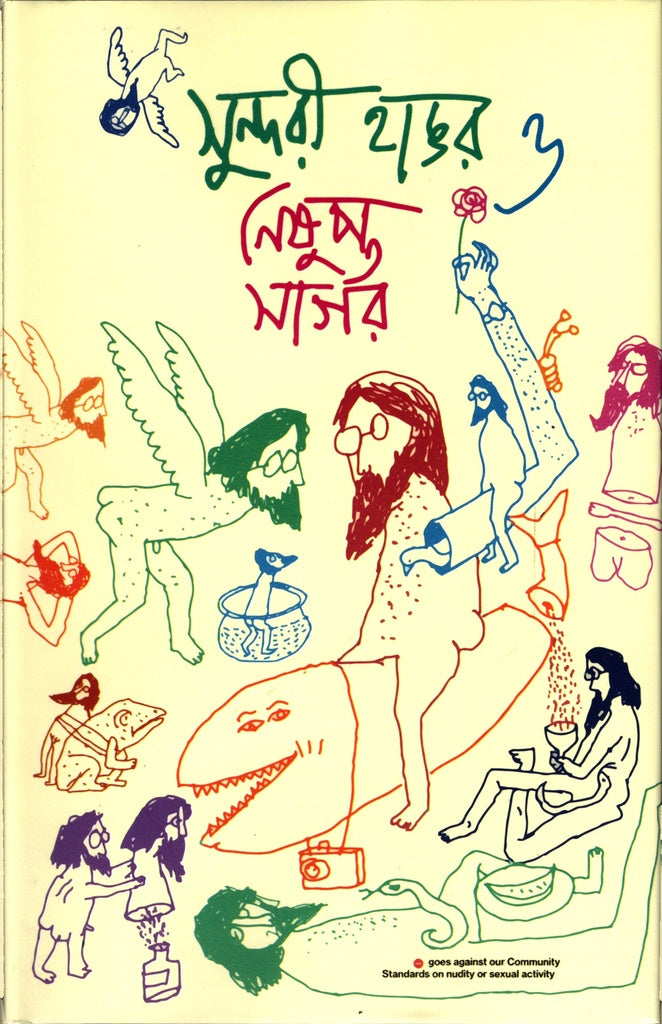 সুন্দরী হাঙর ও
নিষুপ্ত
সাগর
goes against our Community
Standards on nudity or sexual activity